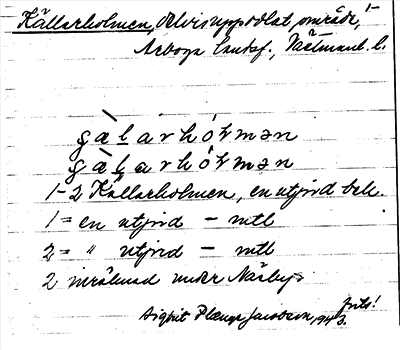 Källarholmen, delvis uppodlat område, 1-
Arboga landsf., Västmanl. l.
gàlarhólmən
gàlarhólmən
1-2 Källarholmen, en utjord bell.
1 = en utjord - mtl
2 = " utjord - mtl
2 inräknad under Näsby
Sigbrit Plænge Jacobson, 1943.